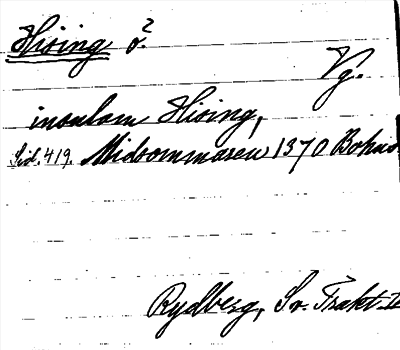 Hising ö.²
Vg.
insulam Hising,
Sid. 419. Midsommaren 1370 Bohus
Rydberg, Sv. Trakt. II